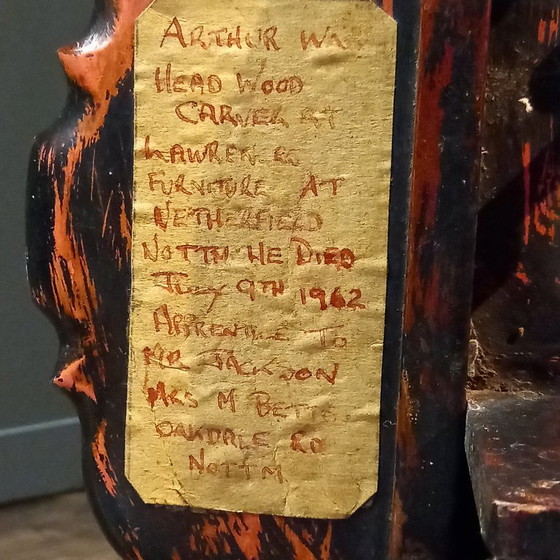 ARTHUR
HEAD WOOD
CARVER AT
LAWREN
FURNITURE AT
NETHERFIELD
NOTTM HE DIED
JULY 9TH 1962
APPRENTICE TO
MR JACKSON
MRS M BETTS
OAKDALE RD
NOTTM